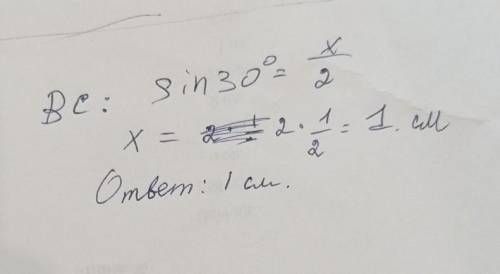 BC: sin30° = x/2
x = 2 · 1/2 = 1. см
Ответ: 1 см.